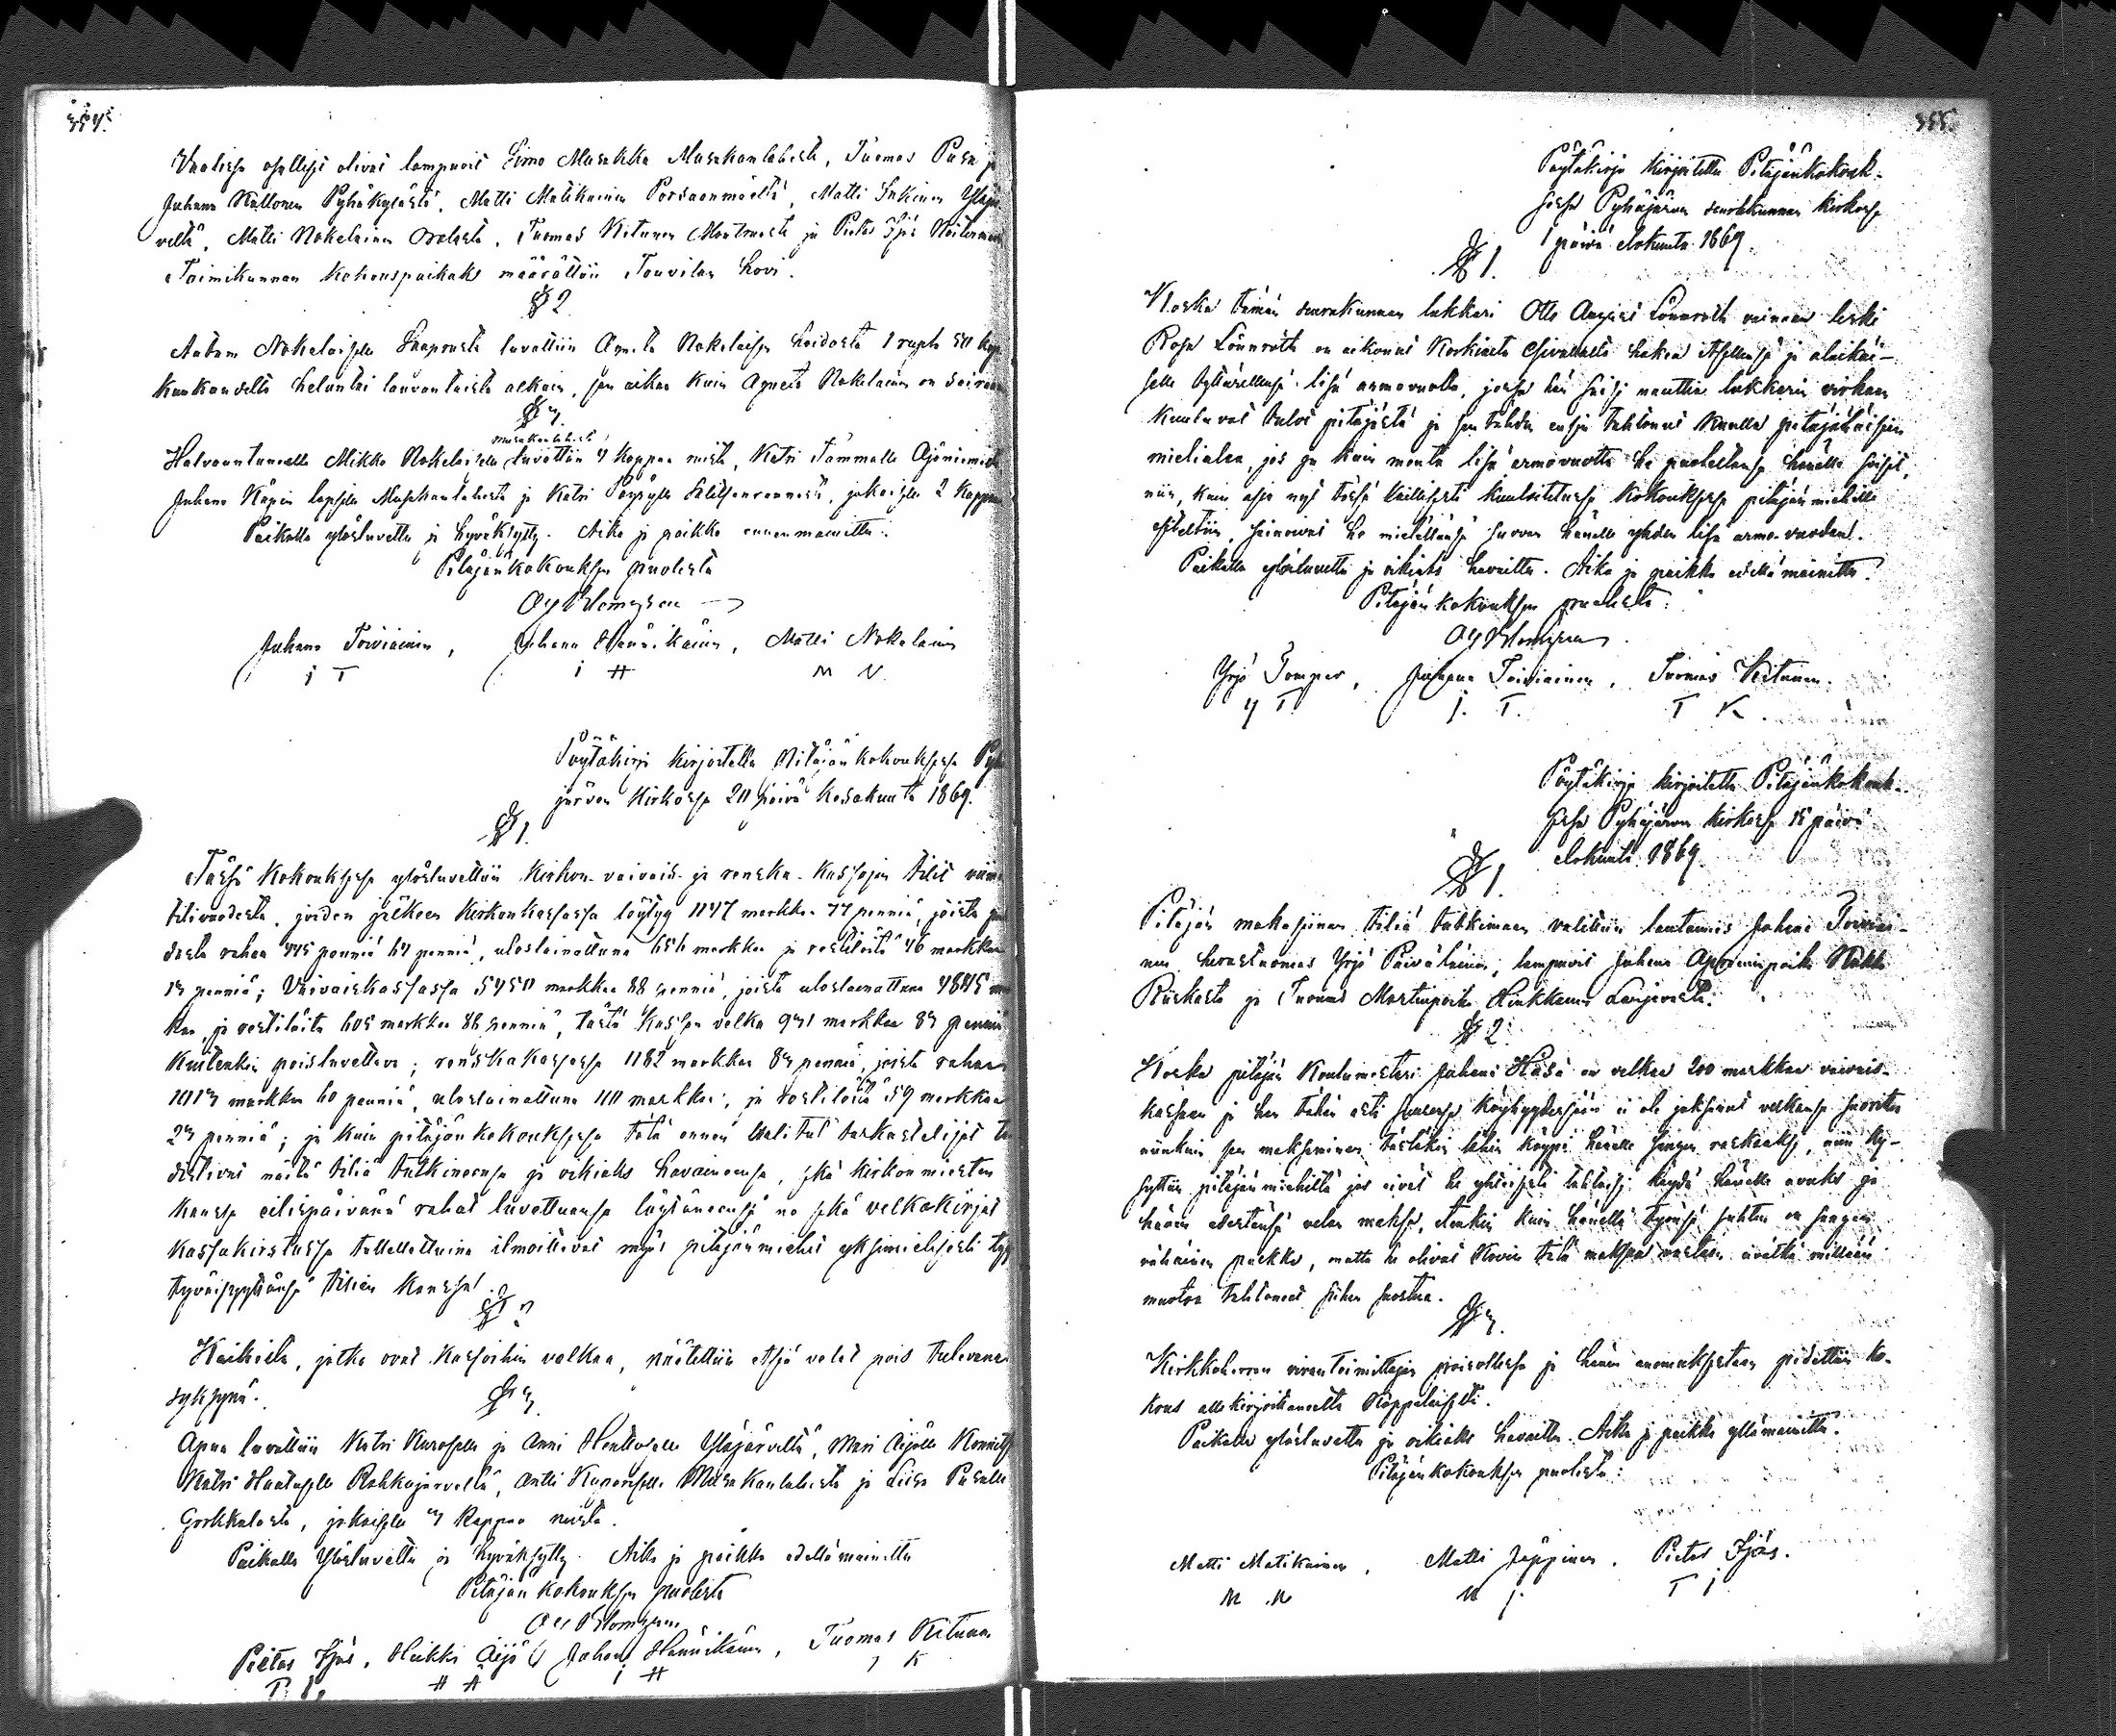 354.
Vaalissa osallisji olivat lampuoit Simo Musakka Musakanlahesta, Tuomas Pusa ja
Juhana Kältonen Pyhäkylästä, Matti Matikainen Porsaanmäeltä, Matti Inkinen Yläjär
veltä, Matti Nokelainen Oralasta, Tuomas Kitunen Montruasta ja Pietar Ijäs
Toimikunnan kokouspaikaks määrättiin Touvilan hovi.
§ 2
Aatam Nokelaiselle luvattiin Agneta Nokelaisen hoidosta 1 rupla 50 kop.
kuukaudelta heluntai lauvantaista alkain, sen aikaa kuin Agneta Nokelainen on sairaana
§ 3.
Musakanlahesta
Halvaantuneelle Mikko Nokelaiselle luvattiin 4 kappaa ruista, Katri Tammelle Ajoniemestä
Juhana Käpin lapsille Musakanlahesta ja Katri jokaiselle 2 kappaa
Paikalla ylösluvettu ja hyväksytty. Aika ja paikka ennenmainittu.
Pitäjänkokouksen puolesta
O W Blomgren
Juhana Toiviainen, Juhana Hännikäinen, Matti Nokelainen
J T J H M N.
Pöytäkirja kirjoitettu Pitäjänkokouksessa Pyhä
järven Kirkossa 20 päivä kesäkuuta 1869.
§ 1.
Tässä kokouksessa ylösluvettiin kirkon- vaivais- ja ronska- kassojen tilit viime
tilivuodesta, joiden jälkeen kirkonkassassa löytyy 1147 markkaa 77 penniä, joista puh
dasta rahaa 445 penniä 64 penniä, uloslainattuna 656 markkaa ja restilöitä 46 markkaa
13 penniä; Vaivaiskassassa 5450 markkaa 88 penniä, joista uloslainattuna 4845 mar
kaa ja restilöitä 605 markkaa 88 penniä, tästä kassan velka 931 markkaa 83 penniä
kuitenkin poisluvettava; ronskakassassa 1182 markkaa 83 penniä, joista rahaa
1013 markkaa 60 penniä, uloslainattuna 110 markkaa, ja restilöitä 59 markkaa
23 penniä; ja kuin pitäjänkokouksessa tätä ennen valitut tarkastelijat to
distivat näitä tiliä tutkineensa ja oikiaks havainneensa, sekä kirkon miesten
kanssa eilispäivänä rahat luvettuansa löytäneensä ne sekä velkakirjat
kassakirstussa tallellettuina ilmoittivat myös pitäjänmiehet yksimielisesti tyy
tyväisyytensä tilien kanssa.
§ 2
Kaikista, jotka ovat kassoihin velkaa, päätettiin etsiä velat pois tulevana
syksynä.
§ 3
Apua luvattiin Katri Kurosella ja Anni Henttoselle Yläjärveltä, Mari Äijölle
Katri Haataselle Rahkajärveltä, Antti Kuparisella Musakanlahesta ja Liisa Pusalle
jokaiselle 3 kappaa ruista.
Paikalla Ylösluvettu ja hyväksytty. Aika ja paikka edellämainittu
Pitäjän kokouksen puolesta
O W Blomgren
Pietar Ijäs, Heikki Äijö, Juhana Hännikäinen, Tuomas Kitunen
P I. H Ä J H T K
355.
Pöytäkirja kirjoitettu Pitäjänkokouk-
sessa Pyhäjärven seurakunnan kirkossa
1 päivä elokuuta 1869.
§ 1.
Koska tämän seurakunnan lukkari Otto August Lönnroth vainaan leski
Rosa Lönnroth on aikonut korkialta Esivallalta hakea itsellensä ja alaikäi-
selle tyttärellensä lisä armovuotta, jossa hän saisi nauttia lukkarin virkaan
kuuluvat tulot pitäjästä ja sen tähden ensin tahtonut kuulla pitäjäläisten
mielialaa, jos ja kuin monta lisä armovuotta he puolestansa hänelle soisit,
niin, kuin asia nyt tässä laillisesti kuuloitetussa kokouksessa pitäjän miehille
esiteltiin, sanoivat he mielellänsä suovan hänelle yhden lisä armo-vuoden.
Paikalla ylösluvettu ja oikiaks havaittu. Aika ja paikka edellämainittu.
Pitäjänkokouksen puolesta:
O W Blomgren.
Yrjö Tomper, Juhana Toiviainen, Tuomas Kitunen.
Y T. J. T. T K.
Pöytäkirja kirjoitettu Pitäjänkokouk-
sessa Pyhäjärven kirkossa 15 päivä
elokuuta 1869.
§ 1.
Pitäjän makasiinan tiliä tutkimaan valittiin lautamies Juhana Toiviai-
nen, herastuomas Yrjö Päiväläinen, lampuoit Juhana Aproniinpoika
Riiskasta ja Tuomas Martinpoika Hinkkanen Larjavasta.
§ 2.
Koska pitäjän koulumestari Juhana Häsä on velkaa 200 markkaa vaivais-
kassaan ja hän tähän asti suuressa köyhyydessään ei ole jaksanut velkansa suorittaa
niinkuin sen maksaminen tästäkin lähin käypi hänelle sangen raskaaksi, niin ky-
syttiin pitäjänmiehiltä jos eivät he yhteisesti tahtoisi käydä hänelle avuks ja
hänen edestänsä velan maksa, etenkin kuin hänellä työnsä suhteen on sangen
vähäinen palkka, mutta he olivat kovin tätä maksua vastaan eivätkä millään
muotoa tahtoneet siihen suostua.
§ 3.
Kirkkoherran virantoimittajan poisollessa ja hänen anomuksestaan pidettiin ko-
kous allekirjoittaneelta Kappalaiselta.
Paikalla ylösluvettu ja oikiaks havaittu. Aika ja paikka yllämainittu.
Pitäjänkokouksen puolesta:
Matti Matikainen, Matti Jäppinen, Pietar Ijäs.
M M M J. P I